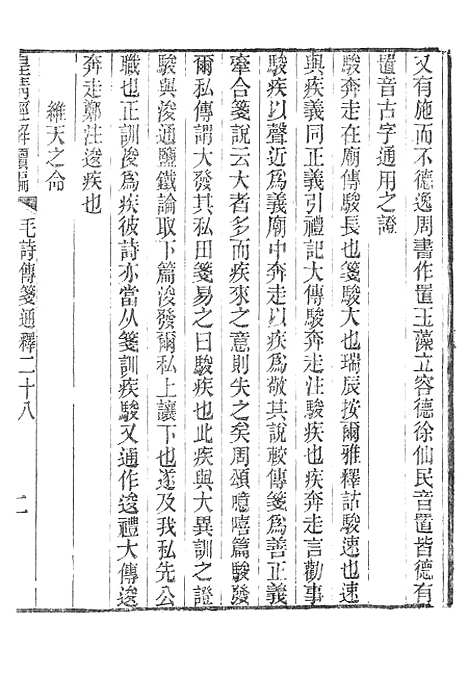 又有施而不德逸周書作置玉藻立容德徐仙民音置皆德有
置音古字通用之證
駿奔走在廟傳駿長也箋駿大也瑞辰按爾雅釋詁駿速也速
與疾義同正義引禮記大傳駿奔走注駿疾也疾奔走言勸事
駿疾以聲近爲義廟中奔走以疾爲敬其說較傳箋爲善正義
牽合箋說云大者多而疾來之意則失之矣周頌噫嘻篇駿發
爾私傳謂大發其私田箋易之曰駿疾也此疾與大異訓之證
駿與浚通鹽鐵論取下篇浚發爾私上讓下也遂及我私先公
職也正訓浚爲疾彼詩亦當从箋訓疾駿又通作逡禮大傳逡
奔走鄭注逡疾也
維天之命
皇淸經解續編
毛詩傳箋通釋二十八
二